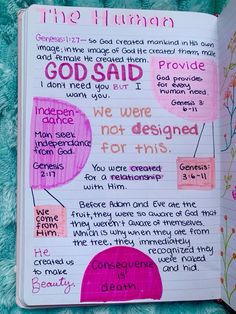 The Human
Genesis 1:27 — so God created mankind in His own
image; in the image of God He created them, male
and female He created them.
GOD SAID
I don't need you BUT I
want you.
Provide
God provides
for every
human need.
Genesis 3:
6-11
Indepen-
dance
Man seek
independance
from God.
Genesis
2:17
We were
not designed
for this.
You were created
for a relationship
with Him.
Genesis:
3:6-11
We
come
from
Him.
Before Adam and Eve ate the
fruit, they were so aware of God that
they weren't aware of themselves.
Which is why when they ate from
the tree, they immediately
recognized they
were naked
and hid.
He
created us
to make
Beauty.
Consequence
is
death.